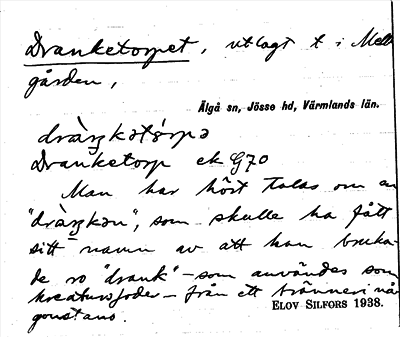 Dranketorpet, utlagt t i Mell
gården,
Älgå sn, Jösse hd, Värmlands län.
dràŋkətårpə
Dranketorp ek G70
Man har hört talas om en
"dràŋkən", som skulle ha fått
sitt namn av att han bruka-
de ro "drank" - som användes som
kreatursfoder - från ett bränneri nå-
gonstans.
ELOV SILFORS 1938.